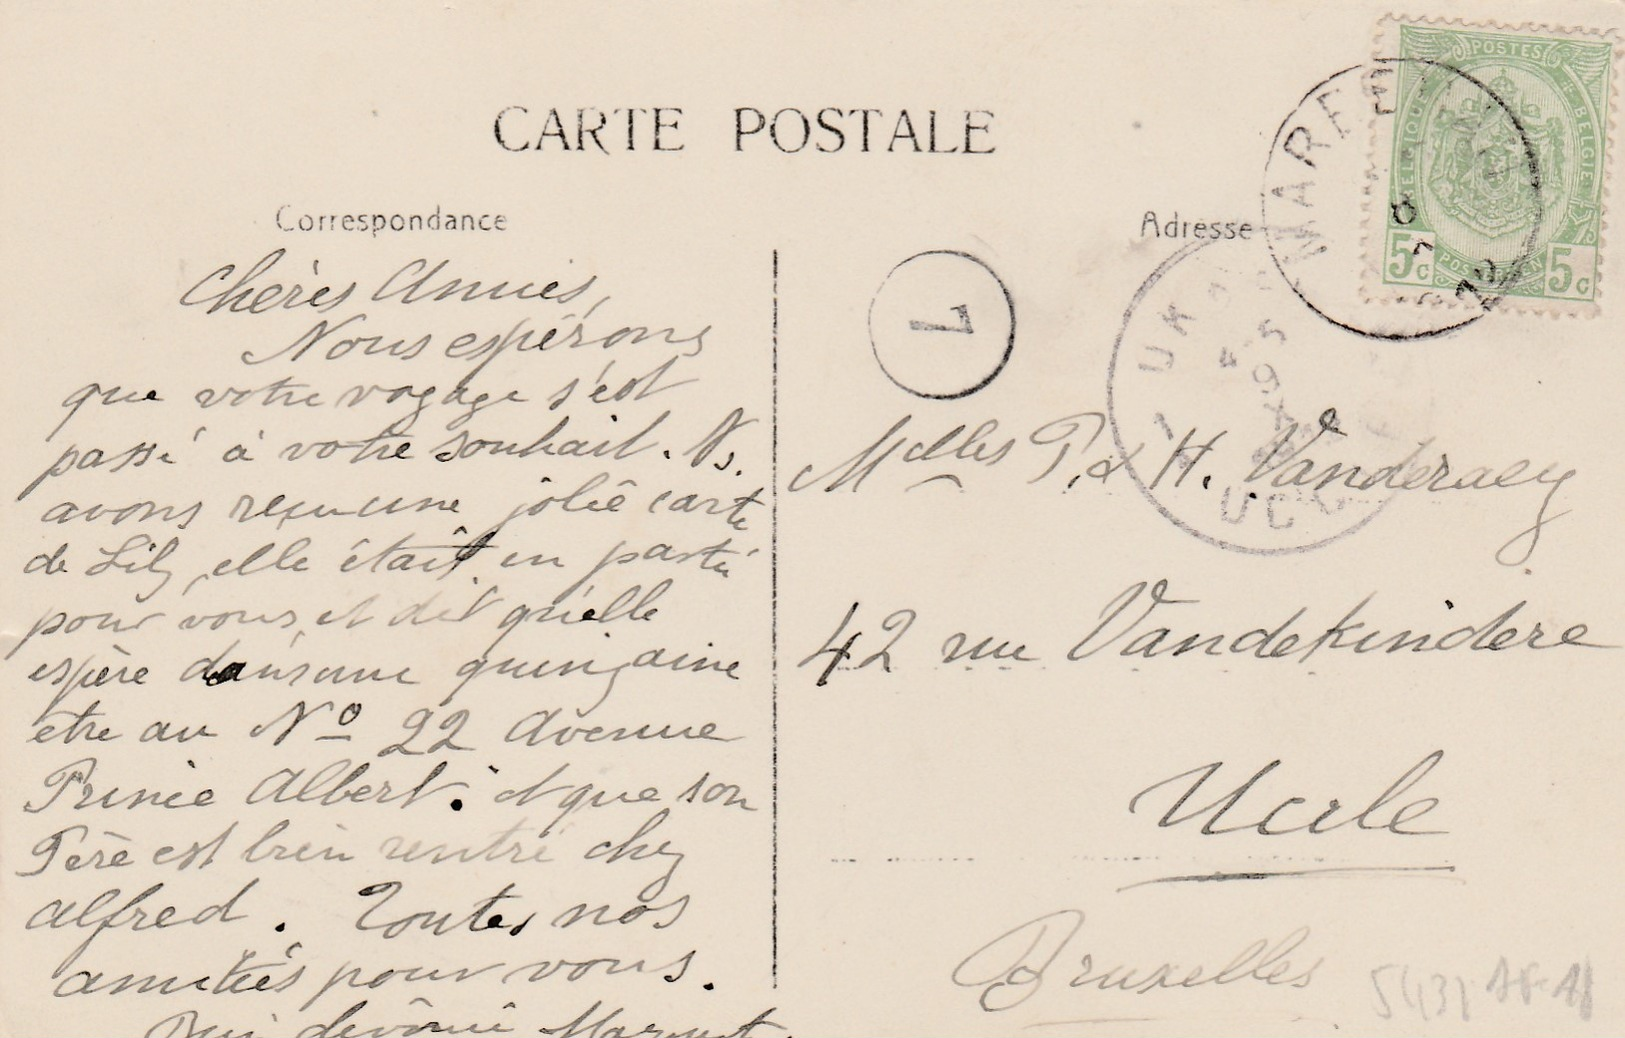 CARTE POSTALE
Correspondance
Chères Amies,
Nous espérons
que votre voyage s'est
passé à votre souhait. Ns.
avons reçu une jolie carte
de Lily, elle était en partie
pour vous, et dit qu'elle
espère dans une quinzaine
etre au No 22 Avenue
Prince Albert. et que son
Père est bien rentré chez
Alfred. Toutes nos
amitiés pour vous.
Bien dévoué
Adresse
POSTES
BELGIQUE
BELGIE
5c
5c
POSTERIJEN
8
7
UKK
UCC
Melles P. & H. Vanderaey
42 rue Vandekindere
Uccle
Bruxelles